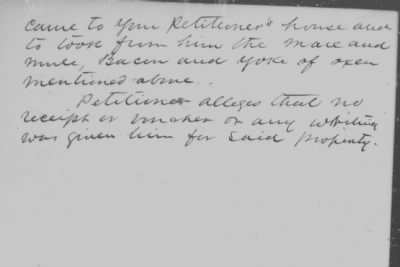 came to your Petitioner's house and
to took from him the mare and
mule, Bacon and yoke of oxen
mentioned above.
Petitioner alleges that no
receipt or voucher or any writing
was given him for said property.